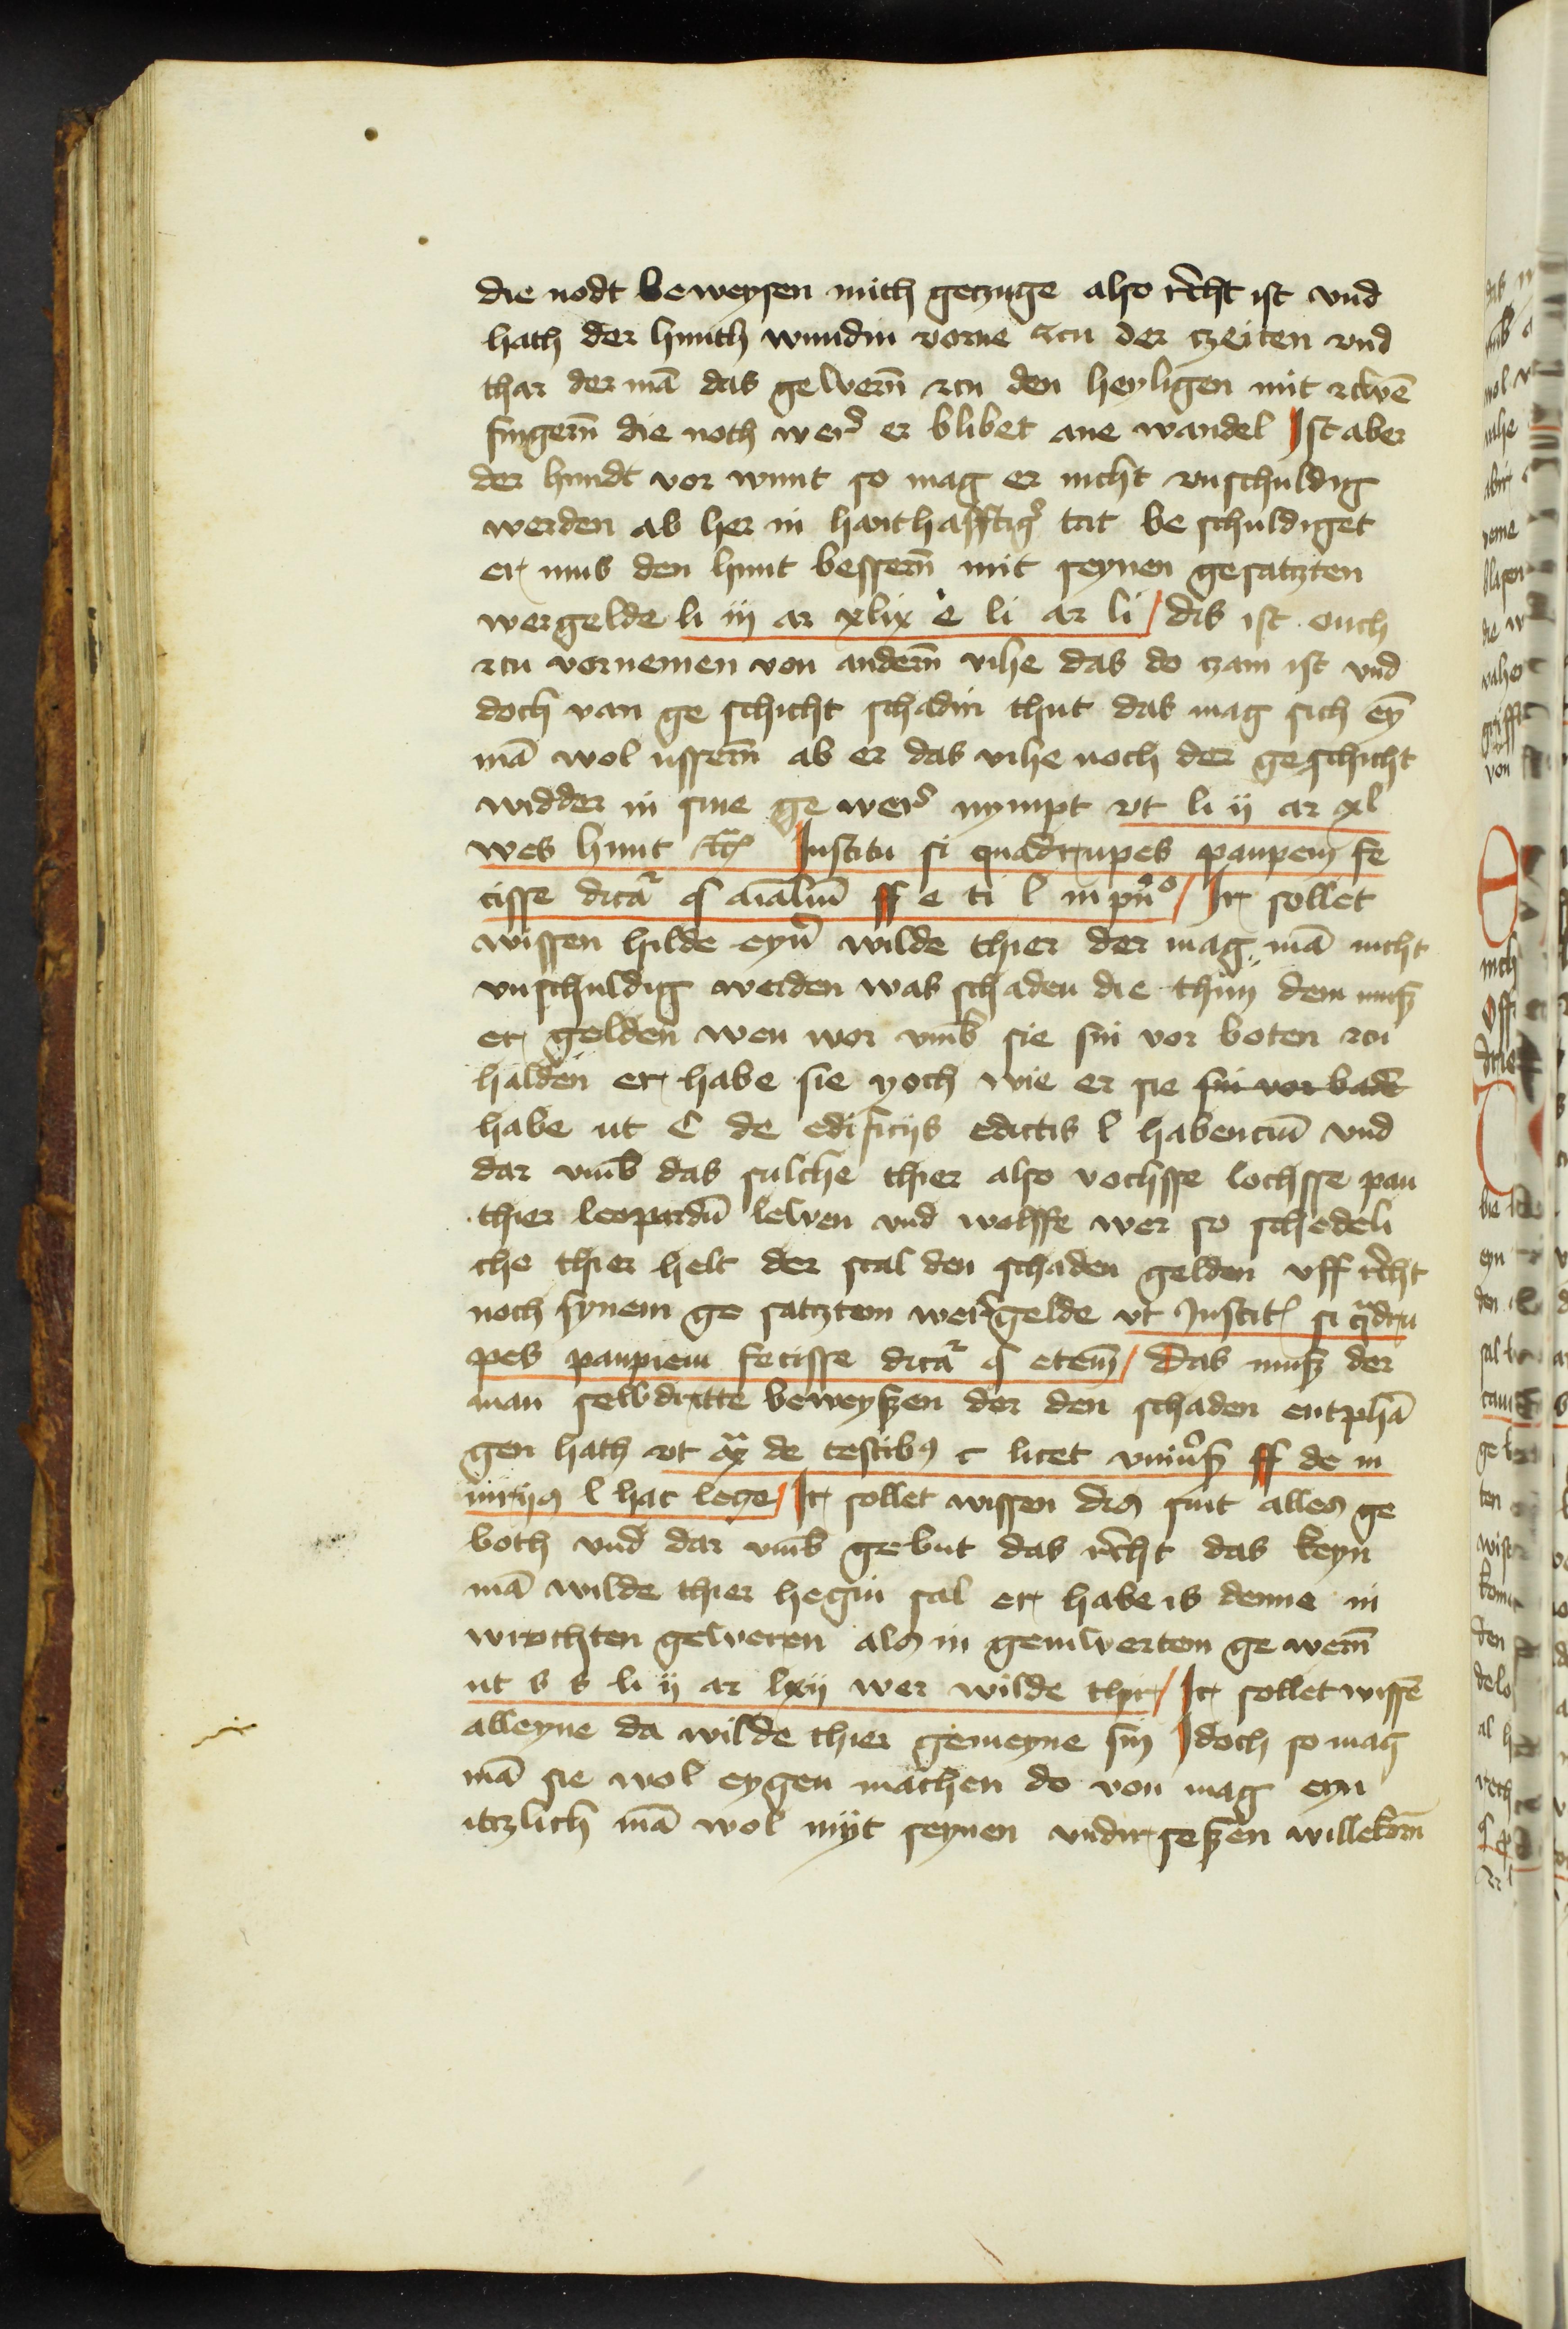 die nodt beweysen mith geczuge also rēcht ist vnd
hath der hunth wundin vorne zcu der czeiten vnd
thar der mā das gewern̄ zcu den heyligen mit zcwē
fingern̄ die noch were er blibet ane wandel Ist aber
der hundt vor wunt so mag er nicht vnschuldig
werden ab her in hanthafftiger tat be schuldiget
er mus den hunt bessern̄ mit seynen gesatzten
wergelde li iij ar xlix e li ar li / dis ist ouch
zcu vornemen von andern̄ vihe das do czam ist vnd
doch van ge schicht schadin thut das mag sich eȳ
mā wol ussern̄ ab er das vihe noch der geschicht
widder in sine ge were nympt vt li ij ar xl
wes hunt Institu si quadrupes paupem fe
cisse dicar̄ aialiū ff e ti l in pn̄o / Ir sollet
wissen hilde eyn̄ wilde thier der mag mā nicht
vnschuldig werden was schaden die thun dem musz
er gelden wen wor vmb sie sin vor boten zcu
halden er habe sie yoch wie er sie sin vor badē
habe ut C de edificijs edictis l habenciū vnd
dar vmb das sulche thier also vochsse lochsse pan
thier lepardū lewen vnd wolffe wer so schedeli
che thier helt der sal den schaden gelden vff rēcht
noch synem ge satztem weregelde vt Instit si qadru
pes paupiem fecisse dicar̄ etem̄ / Das musz der
man selbdritte beweyszen der den schaden entphā
gen hath vt de testibus c licet ff de in
iurijs l hac lege / Ir sollet wissen dis sint alles ge
both vnd dar vmb gebut das rēcht das keyn
mā wilde thier hegin sal er habe is denne in
wrochten geweren als in genwertem ge wern̄
ut s s li ij ar lxij wer wilde thir / Ir sollet wissē
alleyne da wilde thier gemeyne sin Idoch so mag
mā sie wol eygen machen do von mag eyn
itczlich mā wol myt seynen vndir seszen willekom̄